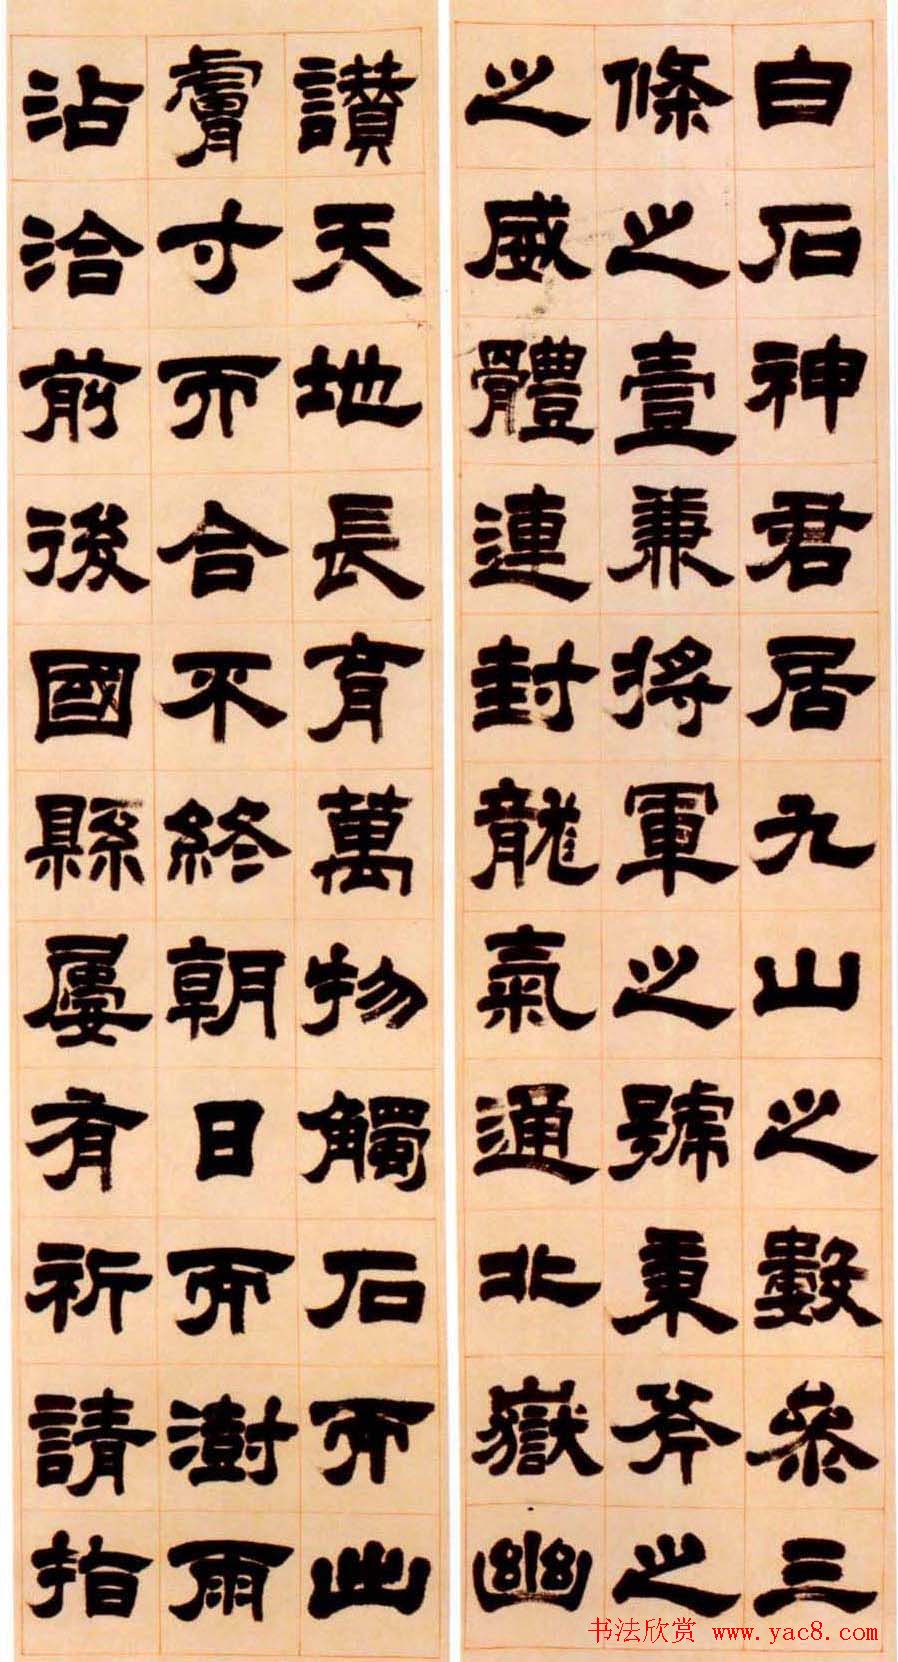 白石神君居九山之數參三
條之壹兼將軍之號秉斧之
之威體連封龍氣通北嶽幽
讚天地長育萬物觸石而出
膚寸而合不終朝日而澍雨
沾洽前後國縣屢有祈請指
书法欣赏 www.yac8.com